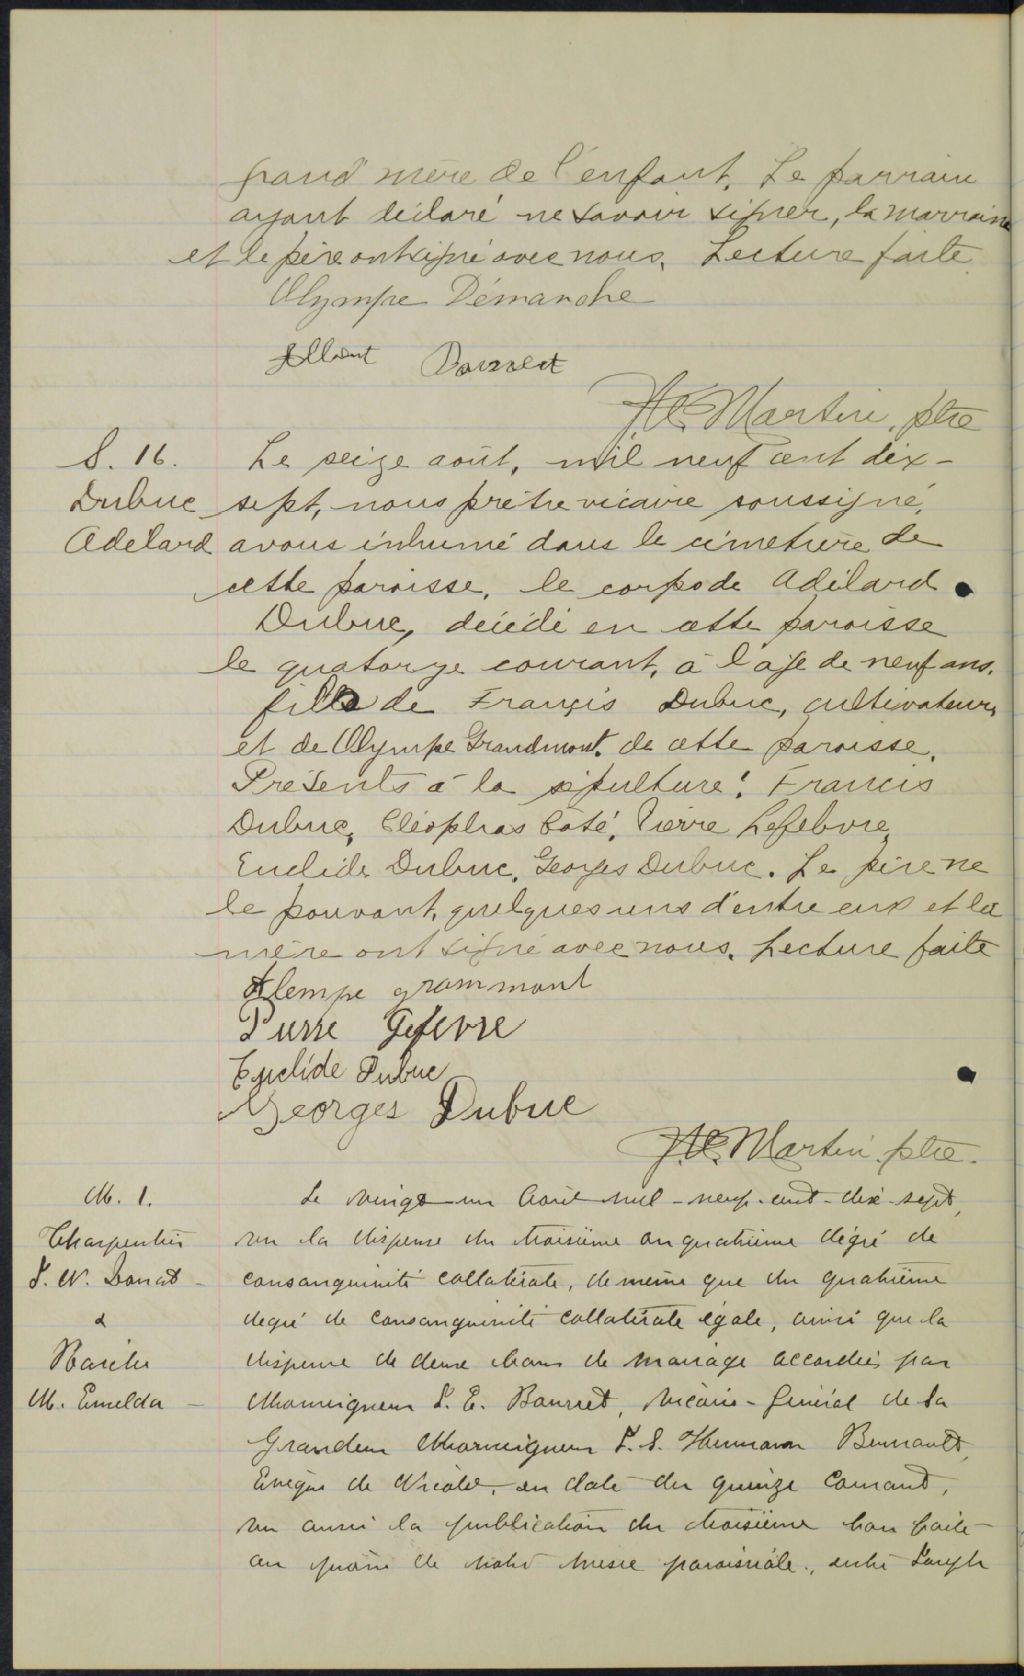 grand'mère de l'enfant. Le parrain
ayant déclaré ne savoir signer, la marraine
et le père ont signé avec nous. Lecture faite
Olympe Démanche
Donnoet
J.A. Martin, ptre
S. 16.
Dubuc
Adelard
Le seize août, mil neuf cent dix-
sept, nous prêtre vicaire soussigné,
avons inhumé dans le cimetière de
cette paroisse, le corps de Adélard
Dubuc, décédé en cette paroisse
le quatorze courant, à l'âge de neuf ans,
fils de Françis Dubuc, cultivateur,
et de Olympe Grandmont, de cette paroisse.
Présents à la sépulture: Francis
Dubuc, Cléophas Côté, Pierre Lefebvre,
Euclide Dubuc, Georges Dubuc. Le père ne
le pouvant, quelques uns d'entre eux et la
mère ont signé avec nous. Lecture faite
Olempe grammont
Pierre Lefevre
Euclide Dubuc
Georges Dubuc
J.A. Martin ptre.
M. 1.
Charpentier
J. N. Donat -
&
M. Emelda -
Le vingt-un Août mil-neuf-cent-dix-sept,
vu la dispense du troisième au quatrième dégré de
consanguinité collatérale, de même que du quatrième
degré de consanguinité collatérale égale, ainsi que la
dispense de deux bans de mariage accordées par
Monseigneur, Vicaire-Général de Sa
Grandeur Monseigneur J. S. Hermann Brunault,
Evêque de Nicolet, en date du quinze courant,
vu aussi la publication du troisième ban faite
au prône de notre messe paroissiale, entre Joseph